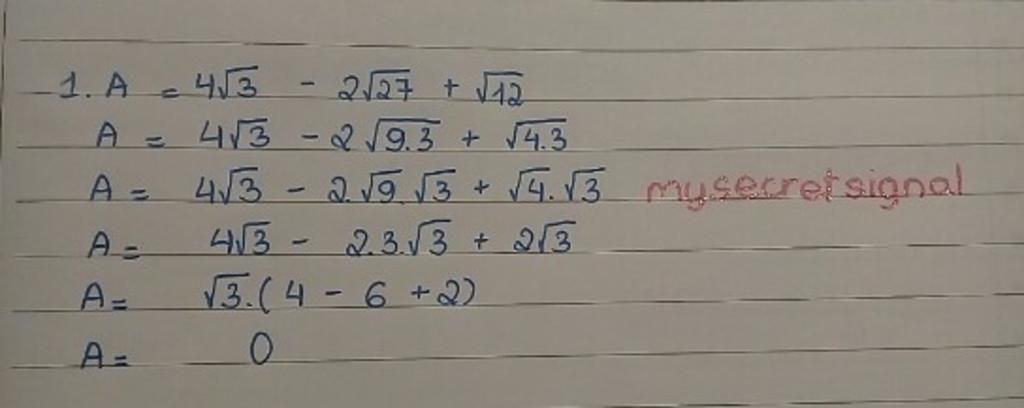 1. A = 4√3 - 2√27 + √12
A = 4√3 - 2√9.3 + √4.3
A = 4√3 - 2.√9.√3 + √4.√3 mysecretsignal
A = 4√3 - 2.3.√3 + 2√3
A = √3.(4 - 6 + 2)
A = 0